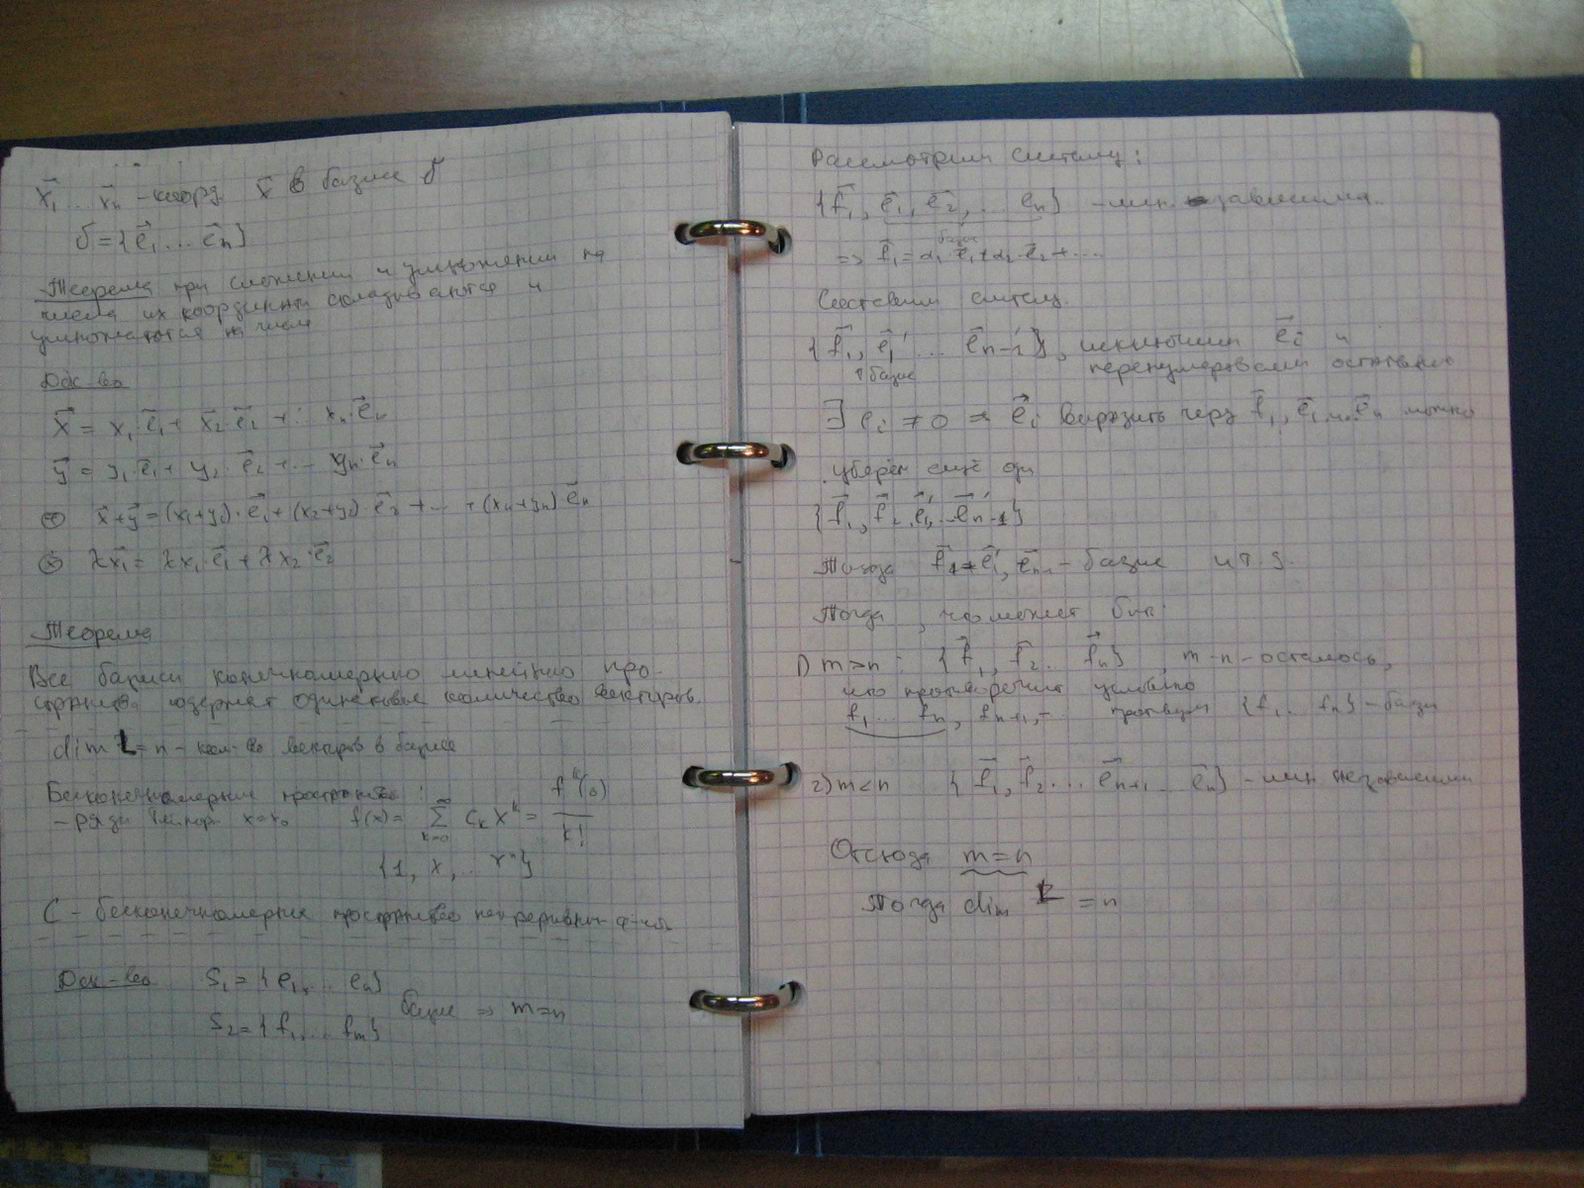 x⃗₁ ... x⃗ₙ - коорд. x⃗ в базисе б
б = {e⃗₁ ... e⃗ₙ}
Теорема при сложении и умножении на
числа их координаты складываются и
умножаются на число
Док-во
x⃗ = x₁·e⃗₁ + x⃗₂·e⃗₂ + ... xₙ·e⃗ₙ
y⃗ = y₁·e⃗₁ + y₂·e⃗₂ + ... yₙ·e⃗ₙ
⊕ x⃗+y⃗ = (x₁+y₁)·e⃗₁ + (x₂+y₂)·e⃗₂ + ... + (xₙ+yₙ)e⃗ₙ
λx⃗₁ = λx₁·e⃗₁ + λx₂·e⃗₂
Теорема
Все базисы конечномерного линейного про-
странства содержат одинаковое количество векторов.
dim L = n - кол-во векторов в базисе
Бесконечномерные пространства:
- ряды x=x₀ f(x) = ∑ₖ₌₀^∞ cₖxᵏ = fᵏ(0)/k!
{1, x, ... xⁿ}
C - бесконечномерное пространство непрерывных ф-ий
Док-во S₁ = {e₁, ... eₙ}
базис ⇒ m=n
S₂ = {f₁, ... fₘ}
Рассмотрим систему:
{f⃗₁, e⃗₁, e⃗₂, ... eₙ} - лин. зависима.
базис
=> f⃗₁ = α₁·e⃗₁ + α₂·e⃗₂ + ...
Составим систему.
{f⃗₁, e⃗₁' ... e⃗ₙ₋₁'}, исключим e⃗ᵢ и
↑базис перенумеровали оставшиеся
∃ eᵢ ≠ 0 e⃗ᵢ выразить через f⃗₁, e⃗₁ ... e⃗ₙ можно
уберем ещё
{f⃗₁, f⃗₂, e⃗₁', ... e⃗ₙ₋₁'}
Тогда e⃗₁', eₙ₋₁ - базис и т.д.
Тогда, может быть
1) m>n: {f⃗₁, f₂ ... f⃗ₙ}, m-n - осталось,
что противоречит условию
f₁ ... fₙ, fₙ₊₁, ... {f₁ ... fₙ} - базис
2) m<n {f⃗₁, f⃗₂ ... e⃗ₙ₊₁ ... e⃗ₙ} - лин. независим
Отсюда m=n
Тогда dim L = n